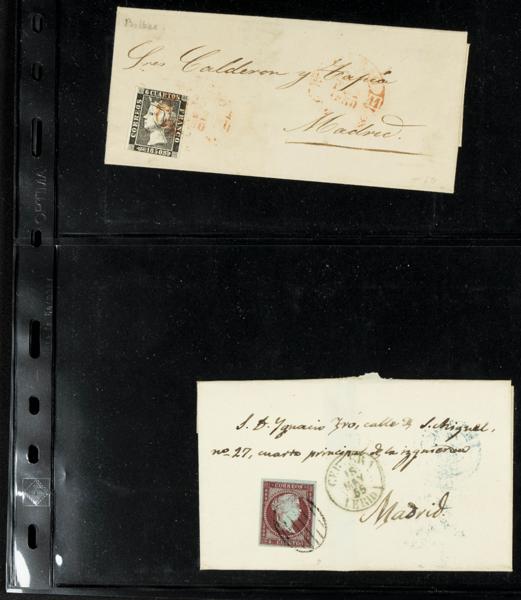 Bilbao
Sres Calderon y Tapia
Madrid.
CORREOS
6 CUARTOS
FRANCO
1850
S. D. Ygnacio Yró, calle de S. Miguel,
no. 27, cuarto principal de la izquierda
CERVERA
15
MAY
55
LERIDA
Madrid.
CORREOS